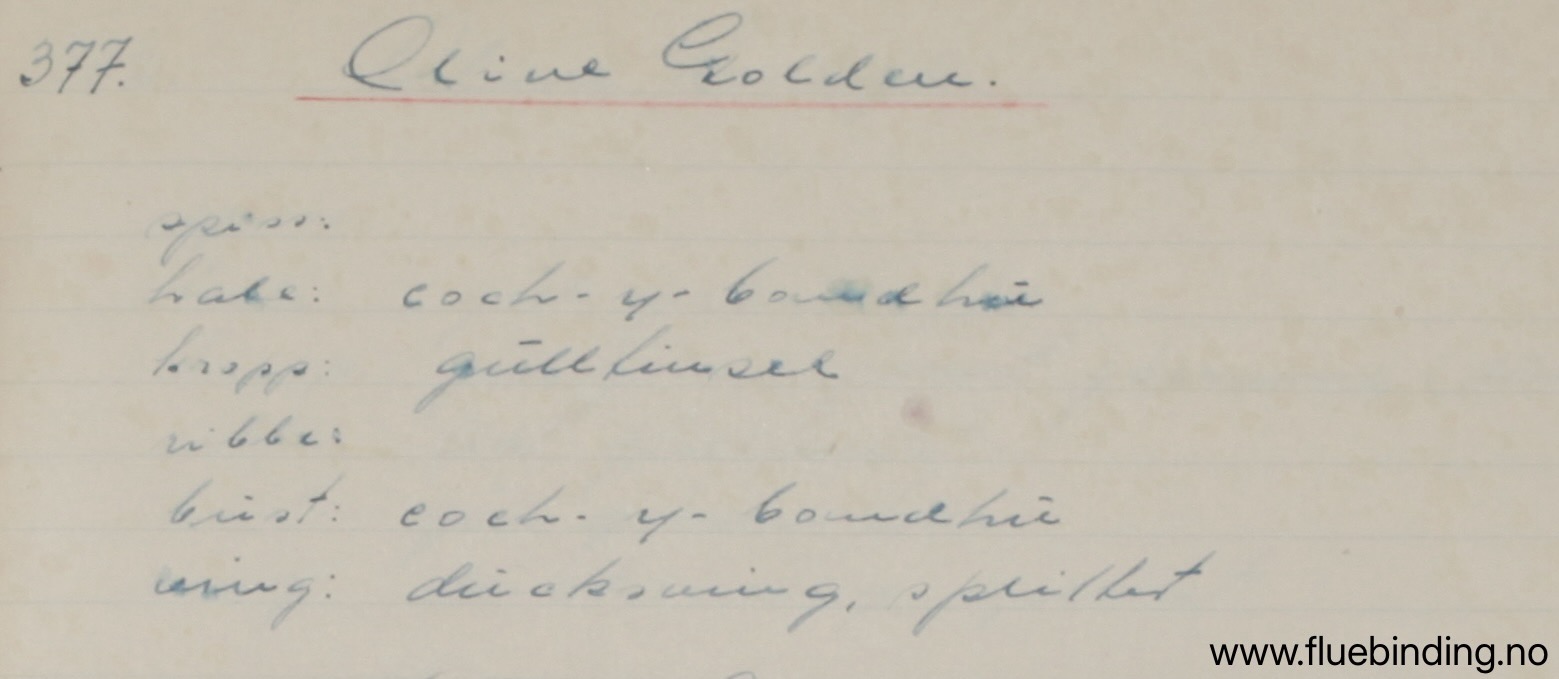 377. Olive Golden.
spiss:
hale: coch-y-bondhu
kropp: gulltinsel
ribbe:
bust: coch-y-bondhu
ving: duckswing, splittet
www.fluebinding.no